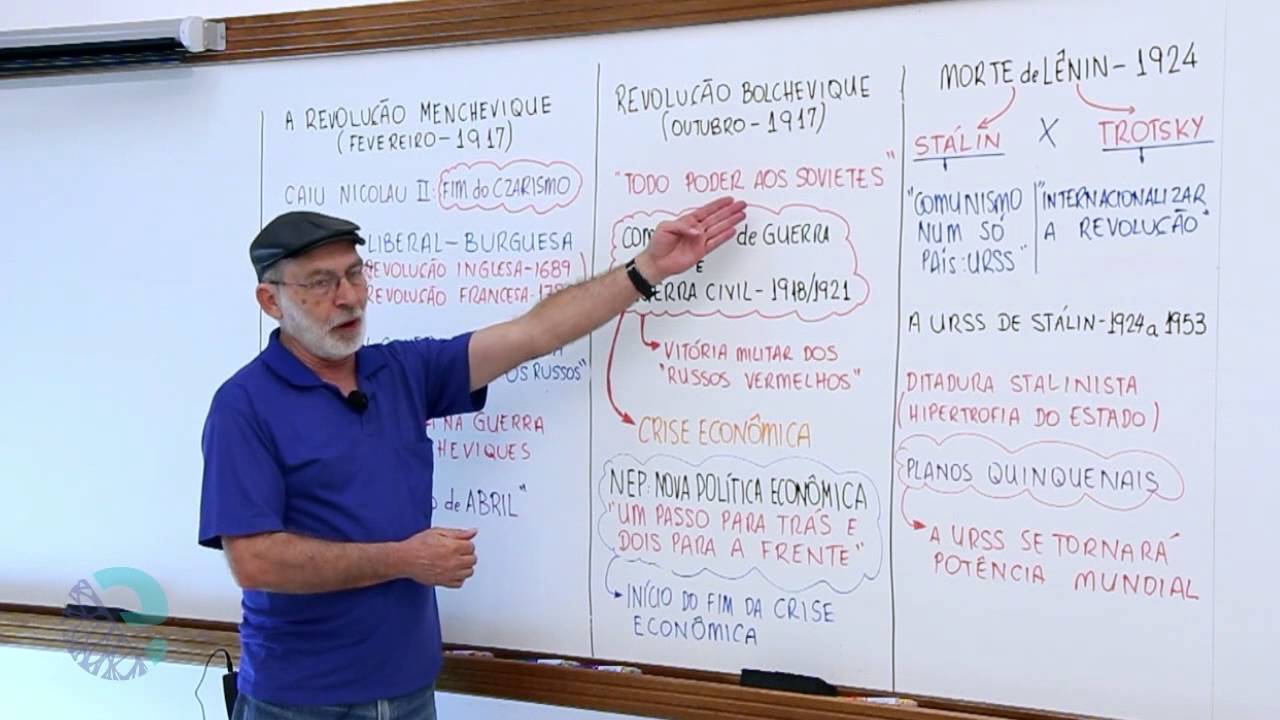 A REVOLUÇÃO MENCHEVIQUE
(FEVEREIRO-1917)
CAIU NICOLAU II: FIM do CZARISMO
LIBERAL-BURGUESA
REVOLUÇÃO INGLESA-1689
REVOLUÇÃO FRANCESA-
OS RUSSOS"
NA GUERRA
de ABRIL"
REVOLUÇÃO BOLCHEVIQUE
(OUTUBRO-1917)
"TODO PODER AOS SOVIETES"
de GUERRA
E
CIVIL-1918/1921
VITÓRIA MILITAR DOS
"RUSSOS VERMELHOS"
CRISE ECONÔMICA
NEP: NOVA POLÍTICA ECONÔMICA
"UM PASSO PARA TRÁS E
DOIS PARA A FRENTE"
INÍCIO DO FIM DA CRISE
ECONÔMICA
MORTE de LÊNIN-1924
STÁLIN X TROTSKY
"COMUNISMO
NUM SÓ
PAÍS: URSS"
"INTERNACIONALIZAR
A REVOLUÇÃO"
A URSS DE STÁLIN-1924 a 1953
DITADURA STALINISTA
(HIPERTROFIA DO ESTADO)
PLANOS QUINQUENAIS
A URSS SE TORNARÁ
POTÊNCIA MUNDIAL